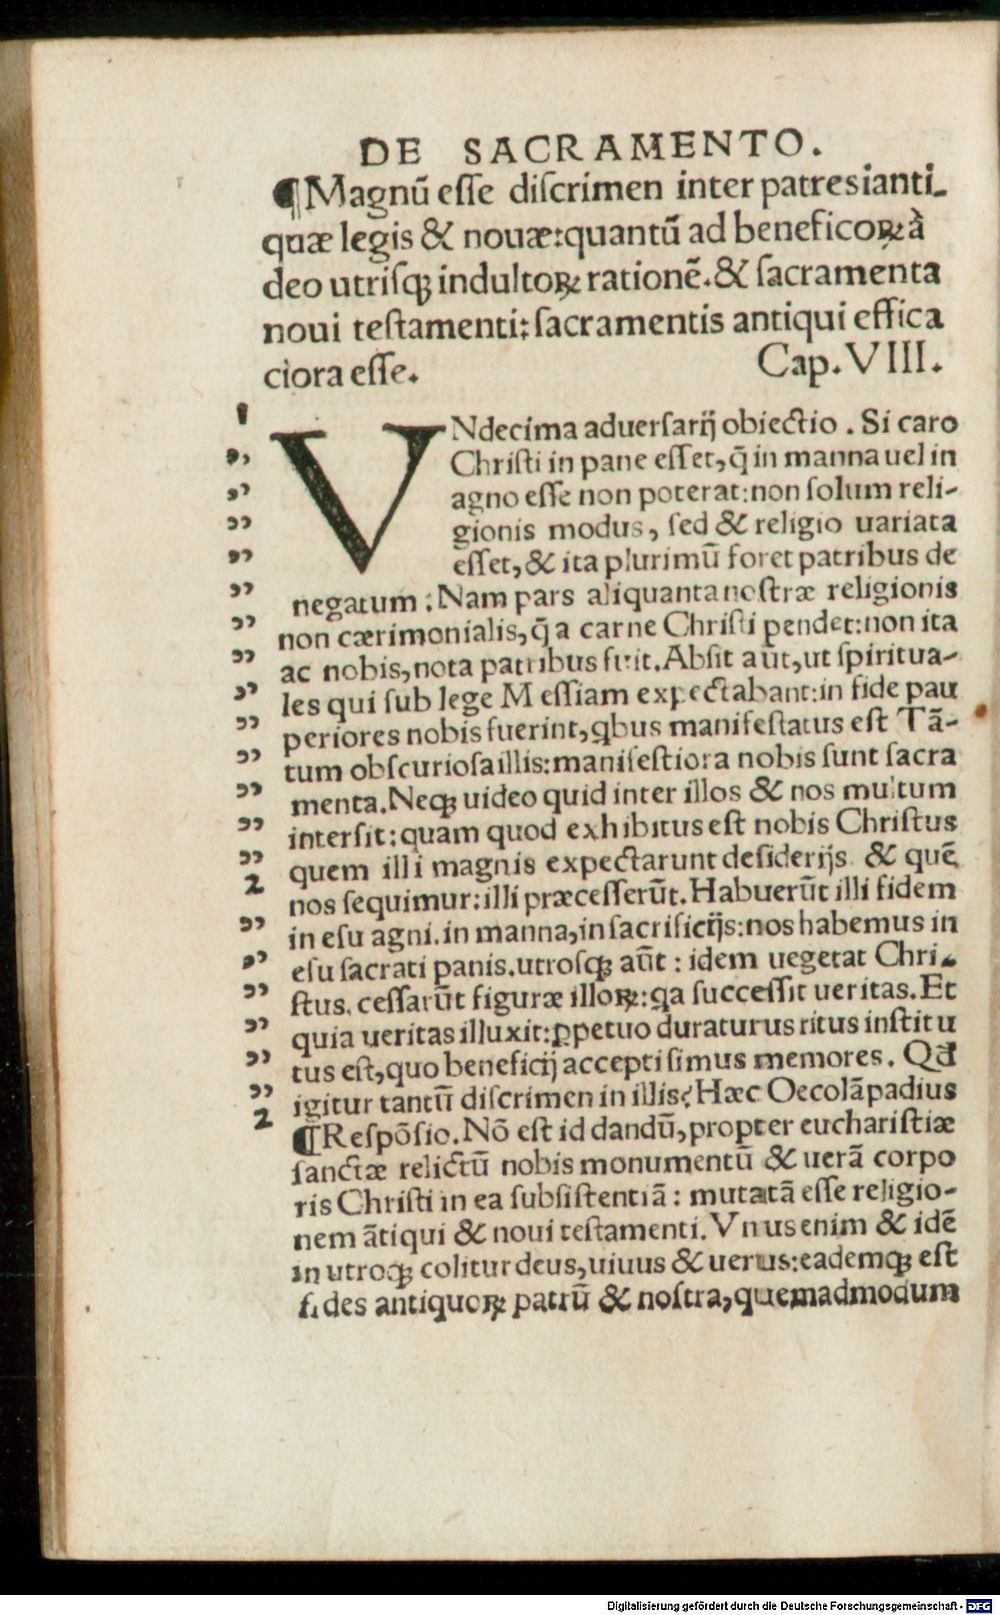 DE SACRAMENTO.
¶Magnū eſſe diſcrimen inter patres ianti-
quæ legis & nouæ:quantū ad beneficoꝝ à
deo utriſqꝫ indultoꝝ rationē.& ſacramenta
noui teſtamenti:ſacramentis antiqui effica
ciora eſſe. Cap.VIII.
VNdecima aduerſarij obiectio. Si caro
Chriſti in pane eſſet,q̄ in manna uel in
agno eſſe non poterat:non ſolum reli-
gionis modus, ſed & religio uariata
eſſet,& ita plurimū foret patribus de
negatum:Nam pars aliquanta noſtræ religionis
non cærimonialis,q̄ a carne Chriſti pendet:non ita
ac nobis,nota patribus fuit.Abſit aūt,ut ſpiritua-
les qui ſub lege Meſſiam expectabant:in fide pau
periores nobis fuerint,ꝗbus manifeſtatus eſt Tā-
tum obſcurioſa illis:manifeſtiora nobis ſunt ſacra
menta.Neqꝫ uideo quid inter illos & nos multum
interſit:quam quod exhibitus eſt nobis Chriſtus
quem illi magnis expectarunt deſiderijs & quē
2 nos ſequimur:illi præceſſerūt.Habuerūt illi fidem
in eſu agni.in manna,in ſacrificijs:nos habemus in
eſu ſacrati panis.utroſqꝫ aūt: idem uegetat Chri-
ſtus.ceſſarūt figuræ illoꝝ:ꝗa ſucceſſit ueritas.Et
quia ueritas illuxit:ꝑpetuo duraturus ritus inſtitu
tus eſt,quo beneficij accepti ſimus memores. Qđ
igitur tantū diſcrimen in illis?Hæc Oecolāpadius
2 ¶Reſpōſio.Nō eſt id dandū,propter euchariſtiæ
ſanctæ relictū nobis monumentū & uerā corpo
ris Chriſti in ea ſubſiſtentiā: mutatā eſſe religio-
nem ātiqui & noui teſtamenti.Vnus enim & idē
in utroqꝫ colitur deus,uiuus & uerus:eademqꝫ eſt
fides antiquoꝝ patrū & noſtra,quemadmodum
Digitalisierung gefördert durch die Deutsche Forschungsgemeinschaft - DFG